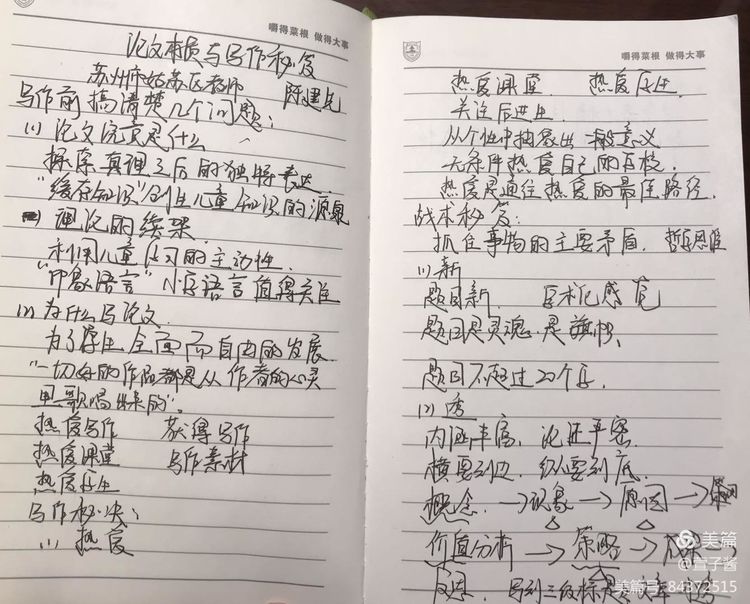 嚼得菜根 做得大事
论文材质与写作秘笈
苏州市姑苏区教师 陈建
写作前搞清楚几个问题:
(1) 论文究竟是什么
探索真理之后的独特表达
"缓存知识"创生儿童知识的源泉
理论的续架
利用儿童学习的主动性.
"印象语言"小学语言值得关注
(2) 为什么写论文.
为了学生全面而自由的发展
"一切好的作品都是从作者的心灵
里歌唱出来的".
热爱写作 获得写作
热爱课堂 写作素材
热爱学生
写作秘诀:
(1) 热爱
嚼得菜根 做得大事
热爱课堂 热爱学生
关注后进生
从个性中抽象出一般意义
无条件热爱自己的学校.
热爱是通往热爱的最佳路径.
战术秘笈:
抓住事物的主要矛盾. 哲学思维
(1) 新
题目新. 学术化感觉
题目是灵魂.是旗帜.
题目不超过20个字.
(2) 透
内涵丰富, 论证严密.
横要到边, 纵要到底.
概念.→现象→原因→策略
价值分析→策略→
反思. 写到三级标
美篇
@宣子酱
美篇号:84372515